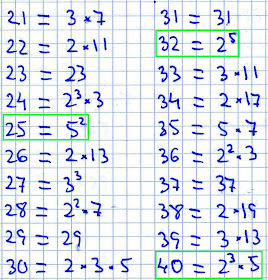 21 = 3·7
22 = 2·11
23 = 23
24 = 2³·3
25 = 5²
26 = 2·13
27 = 3³
28 = 2²·7
29 = 29
30 = 2·3·5
31 = 31
32 = 2⁵
33 = 3·11
34 = 2·17
35 = 5·7
36 = 2²·3
37 = 37
38 = 2·19
39 = 3·13
40 = 2³·5